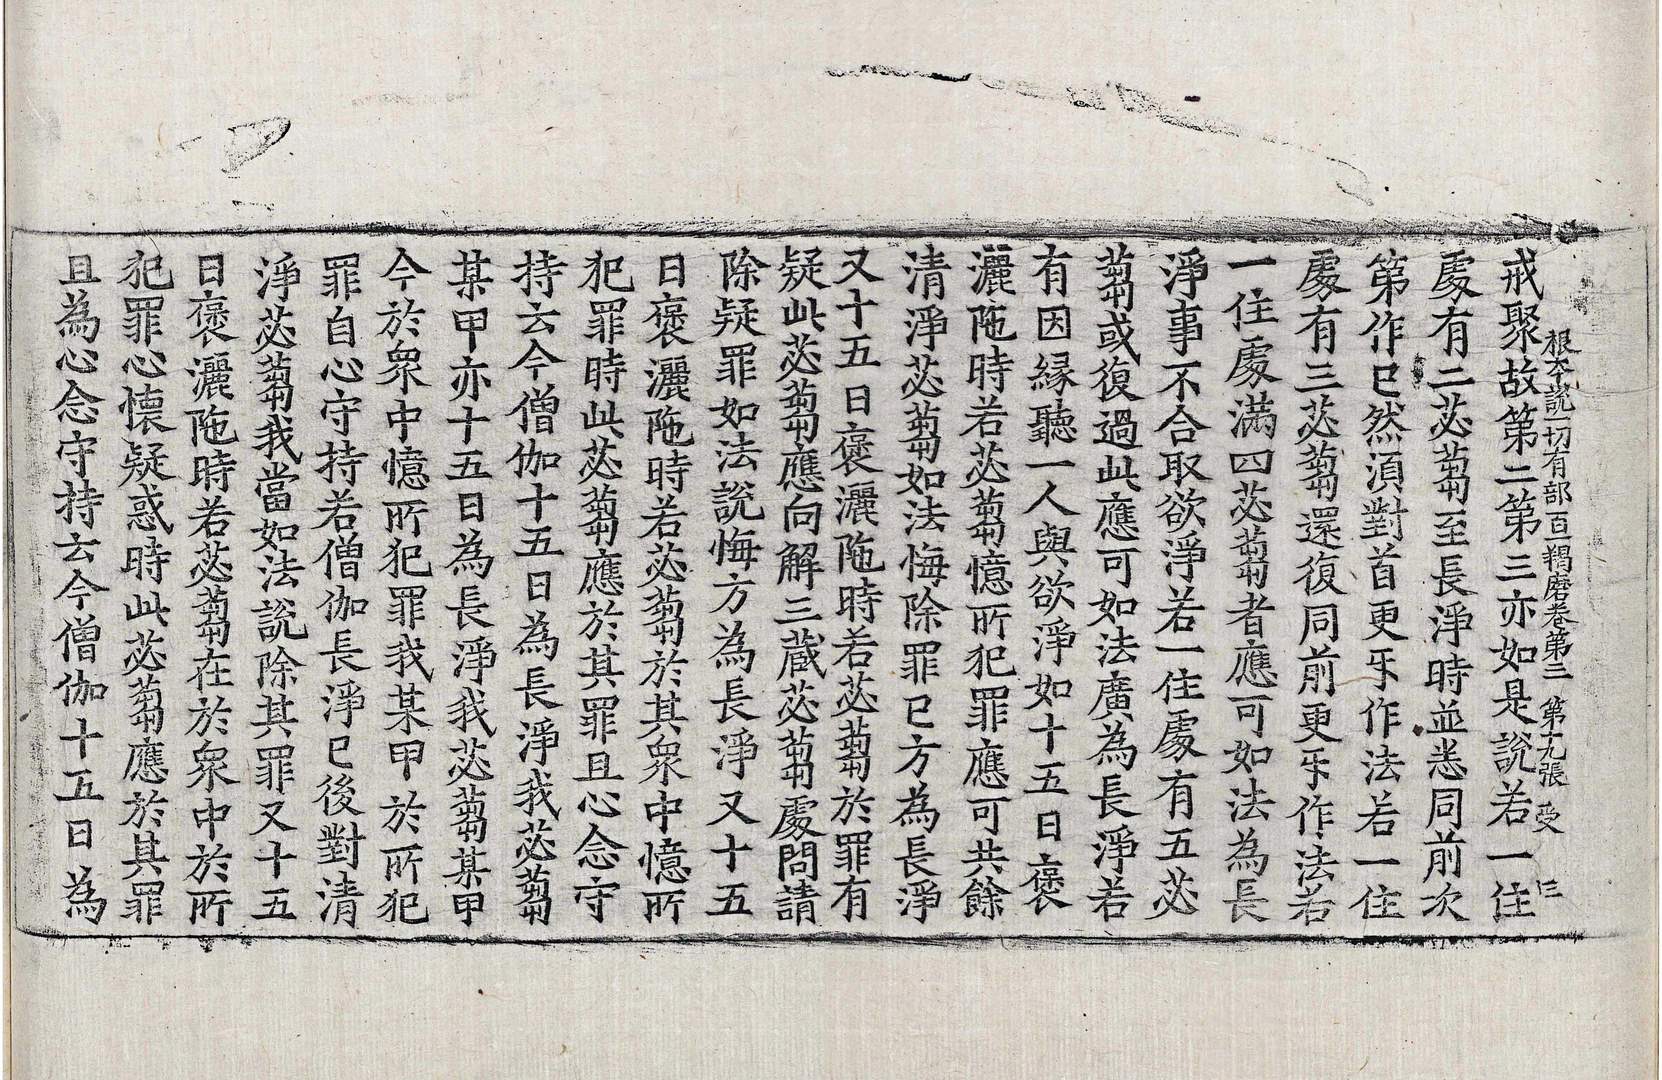 根本說一切有部百一羯磨卷第三　第九張　受
戒聚故第二第三亦如是說若一住
處有二苾蒭至長淨時並悉同前次
第作已然須對首更㸦作法若一住
處有三苾蒭還復同前更㸦作法若
一住處滿四苾蒭者應可如法為長
淨事不合取欲淨若一住處有五苾
蒭或復過此應可如法廣為長淨若
有因緣聽一人與欲淨如十五日褒
灑陁時若苾蒭憶所犯罪應可共餘
清淨苾蒭如法悔除罪已方為長淨
又十五日褒灑陁時若苾蒭於罪有
疑此苾蒭應向解三藏苾蒭處問請
除疑罪如法說悔方為長淨又十五
日褒灑陁時若苾蒭於其衆中憶所
犯罪時此苾蒭應於其罪且心念守
持云今僧伽十五日為長淨我苾蒭
某甲亦十五日為長淨我苾蒭某甲
今於衆中憶所犯罪我某甲於所犯
罪自心守持若僧伽長淨已後對清
淨苾蒭我當如法說除其罪又十五
日褒灑陁時若苾蒭在於衆中於所
犯罪心懷疑惑時此苾蒭應於其罪
且為心念守持云今僧伽十五日為